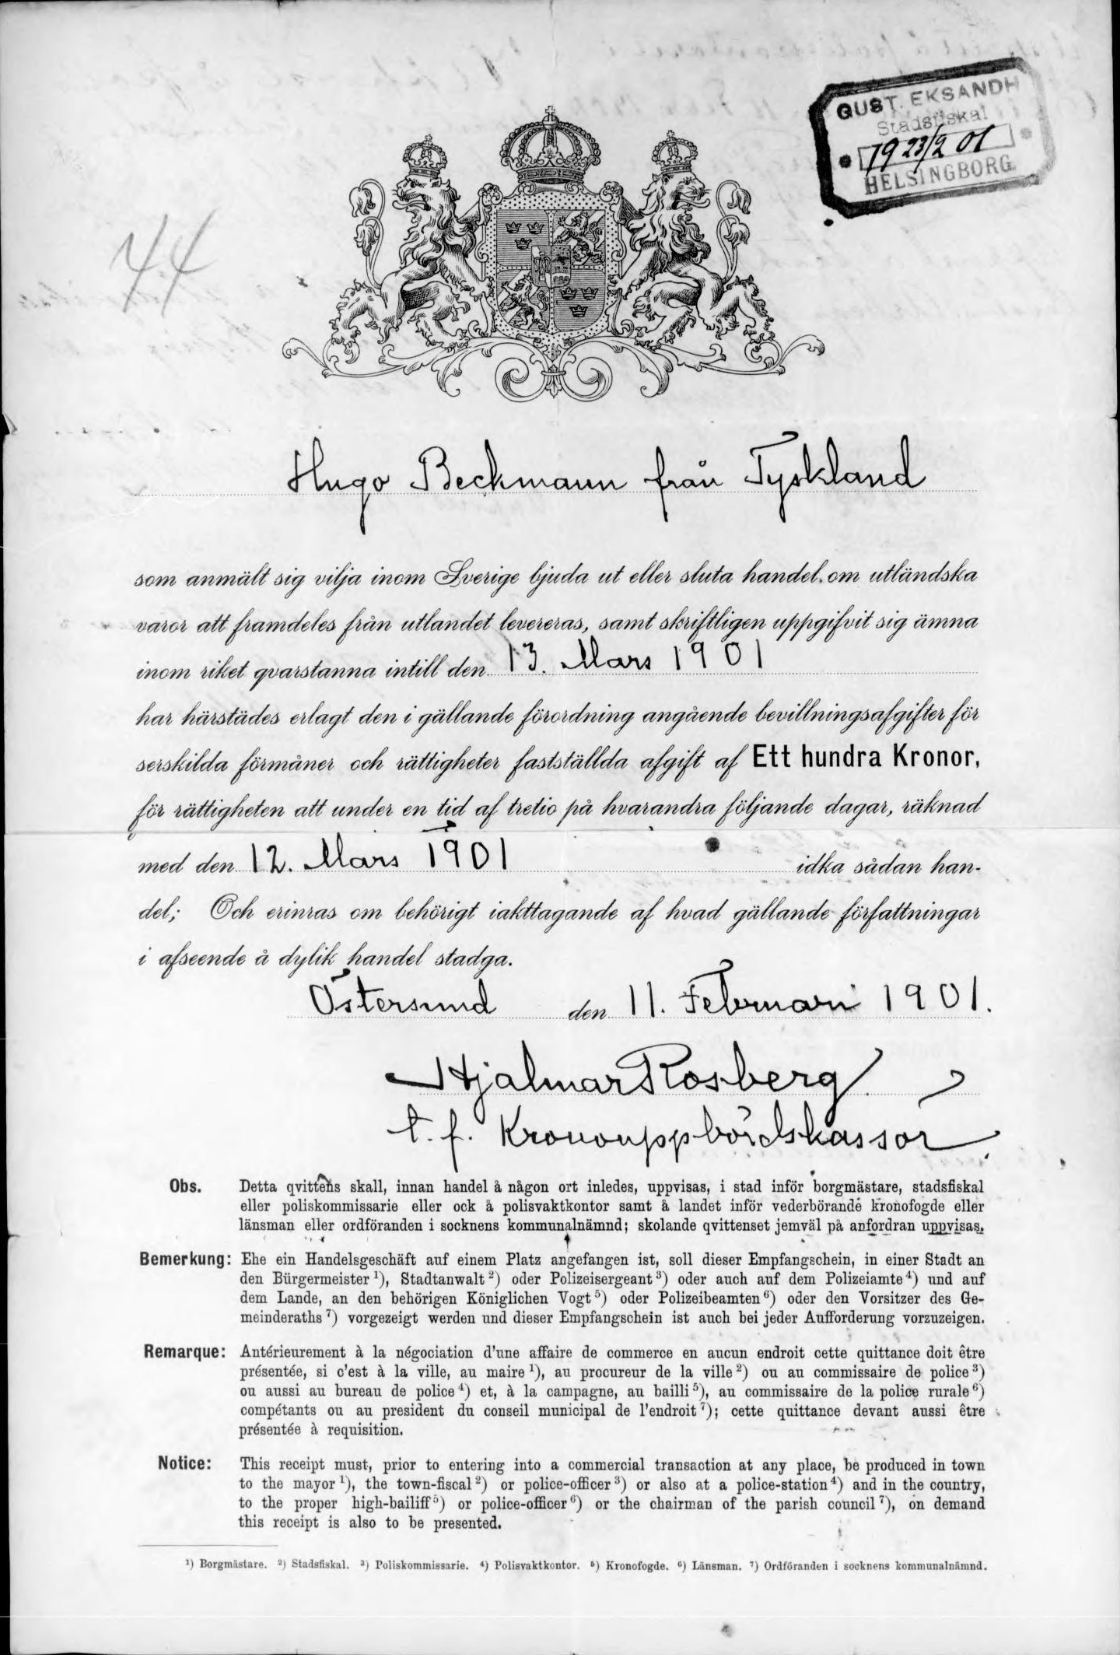 GUST. EKSANDH
Stadsfiskal
19 23/2 01
HELSINGBORG
44
Hugo Beckmann från Tyskland
som anmält sig vilja inom Sverige bjuda ut eller sluta handel om utländska
varor att framdeles från utlandet levereras, samt skriftligen uppgifvit sig ämna
inom riket qvarstanna intill den 13. Mars 1901
har härstädes erlagt den i gällande förordning angående bevillningsafgifter för
serskilda förmåner och rättigheter fastställda afgift af Ett hundra Kronor,
för rättigheten att under en tid af tretio på hvarandra följande dagar, räknad
med den 12. Mars 1901 idka sådan han-
del; Och erinras om behörigt iakttagande af hvad gällande författningar
i afseende å dylik handel stadga.
Östersund den 11. Februari 1901.
Hjalmar Rosberg
t. f. Kronouppbördskassör
Obs. Detta qvittens skall, innan handel å någon ort inledes, uppvisas, i stad inför borgmästare, stadsfiskal
eller poliskommissarie eller ock å polisvaktkontor samt å landet inför vederbörande kronofogde eller
länsman eller ordföranden i socknens kommunalnämnd; skolande qvittenset jemväl på anfordran uppvisas.
Bemerkung: Ehe ein Handelsgeschäft auf einem Platz angefangen ist, soll dieser Empfangschein, in einer Stadt an
den Bürgermeister ¹), Stadtanwalt ²) oder Polizeisergeant ³) oder auch auf dem Polizeiamte ⁴) und auf
dem Lande, an den behörigen Königlichen Vogt ⁵) oder Polizeibeamten ⁶) oder den Vorsitzer des Ge-
meinderaths ⁷) vorgezeigt werden und dieser Empfangschein ist auch bei jeder Aufforderung vorzuzeigen.
Remarque: Antérieurement à la négociation d'une affaire de commerce en aucun endroit cette quittance doit être
présentée, si c'est à la ville, au maire ¹), au procureur de la ville ²) ou au commissaire de police ³)
ou aussi au bureau de police ⁴) et, à la campagne, au bailli ⁵), au commissaire de la police rurale ⁶)
compétants ou au president du conseil municipal de l'endroit ⁷); cette quittance devant aussi être
présentée à requisition.
Notice: This receipt must, prior to entering into a commercial transaction at any place, be produced in town
to the mayor ¹), the town-fiscal ²) or police-officer ³) or also at a police-station ⁴) and in the country,
to the proper high-bailiff ⁵) or police-officer ⁶) or the chairman of the parish council ⁷), on demand
this receipt is also to be presented.
¹) Borgmästare. ²) Stadsfiskal. ³) Poliskommissarie. ⁴) Polisvaktkontor. ⁵) Kronofogde. ⁶) Länsman. ⁷) Ordföranden i socknens kommunalnämnd.